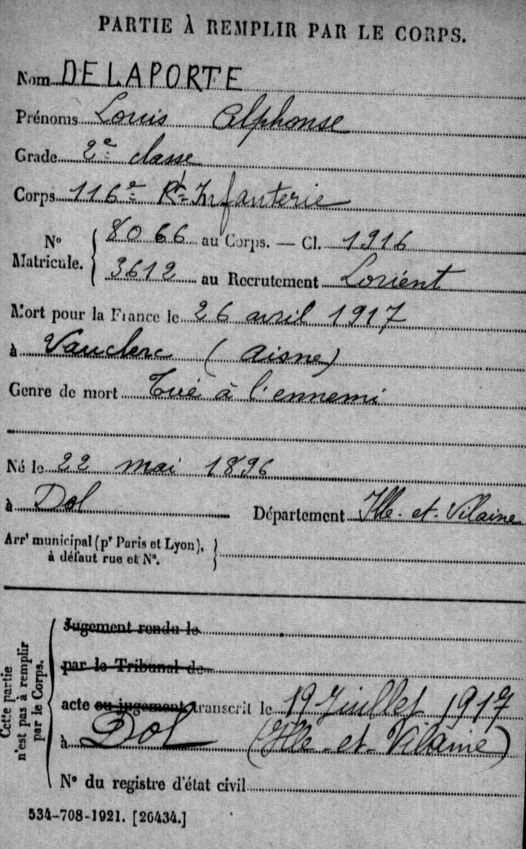 PARTIE À REMPLIR PAR LE CORPS.
Nom DELAPORTE
Prénoms Louis Alphonse
Grade 2e classe
Corps 116e Rt Infanterie
No Matricule. { 8066 au Corps. — Cl. 1916
3612 au Recrutement Lorient
Mort pour la France le 26 avril 1917
à Vauclerc (Aisne)
Genre de mort Tué à l'ennemi
Né le 22 mai 1896
à Dol Département Ille-et-Vilaine
Arrt municipal (pr Paris et Lyon), }
à défaut rue et No.
Cette partie n'est pas à remplir par le Corps.
Jugement rendu le
par le Tribunal de
acte ou jugement transcrit le 19 Juillet 1917
à Dol (Ille-et-Vilaine)
No du registre d'état civil
534-708-1921. [26434.]